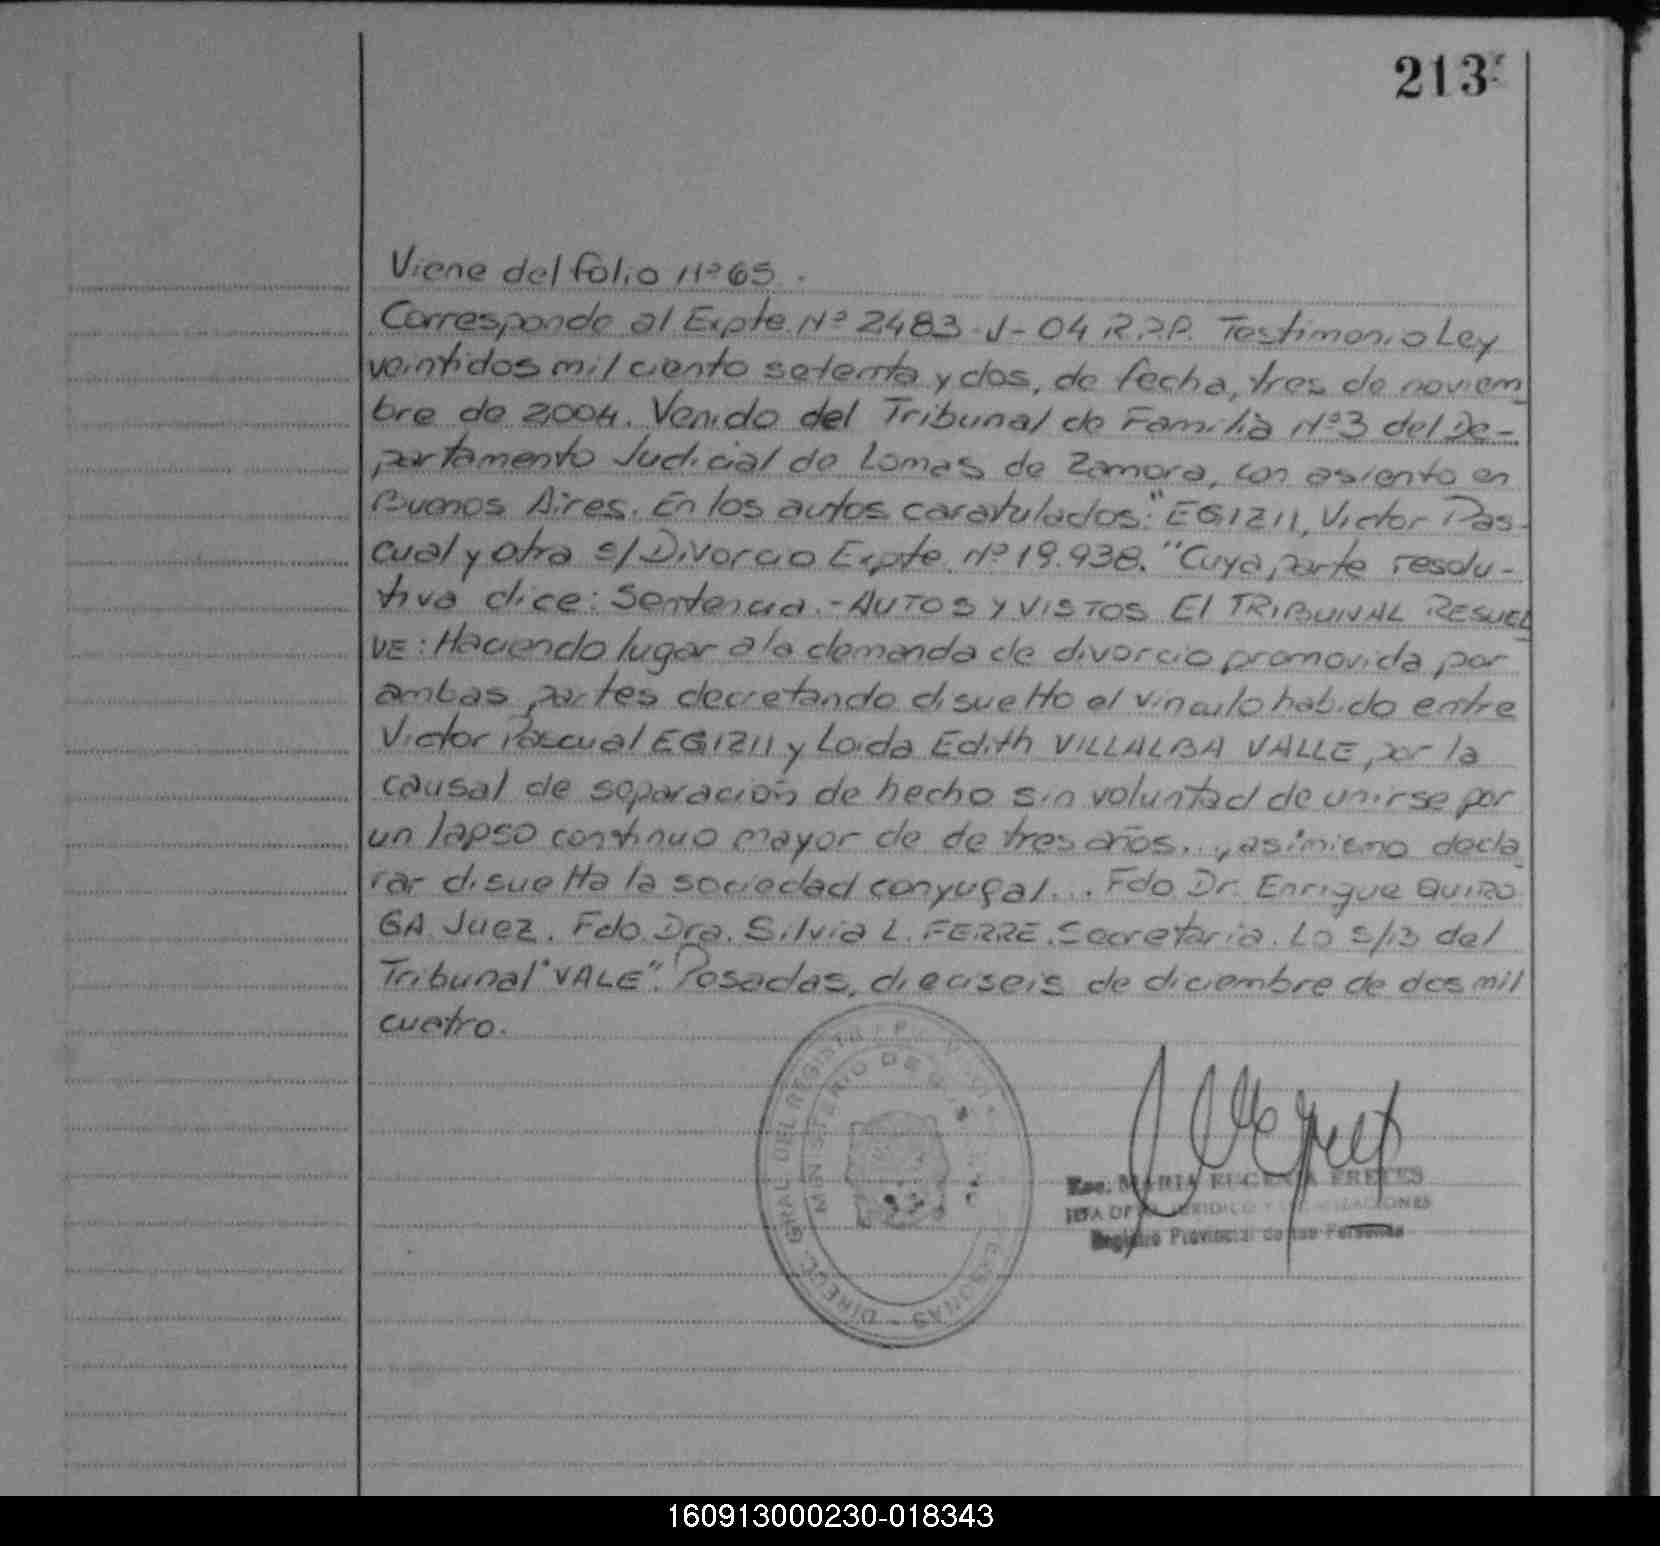 213
Viene del folio Nº 65.
Corresponde al Expte. Nº 2483-J-04 R.P.P. Testimonio Ley
veintidos mil ciento setenta y dos, de fecha, tres de noviem
bre de 2004. Venido del Tribunal de Familia Nº 3 del De-
partamento Judicial de Lomas de Zamora, con asiento en
Buenos Aires. En los autos caratulados: "EGIZII, Victor Pas-
cual y otra s/ Divorcio Expte. Nº 19.938. "Cuya parte resolu-
tiva dice: Sentencia.- AUTOS y VISTOS El TRIBUNAL RESUEL
VE: Haciendo lugar a la demanda de divorcio promovida por
ambas partes decretando disuelto el vinculo habido entre
Victor Pascual EGIZII y Loida Edith VILLALBA VALLE, por la
causal de separación de hecho sin voluntad de unirse por
un lapso continuo mayor de de tres años.., asimismo decla
rar disuelta la sociedad conyugal... Fdo. Dr. Enrique QUIRO
GA. Juez. Fdo. Dra. Silvia L. FERRE. Secretaria. Lo s/b del
Tribunal "VALE". Posadas, dieciseis de diciembre de dos mil
cuatro.
DIREC. GRAL. DEL REGISTRO PERSONAS
MINISTERIO DE
Esc. MARIA EUGENIA FRETES
Registro Provincial de las Personas
160913000230-018343